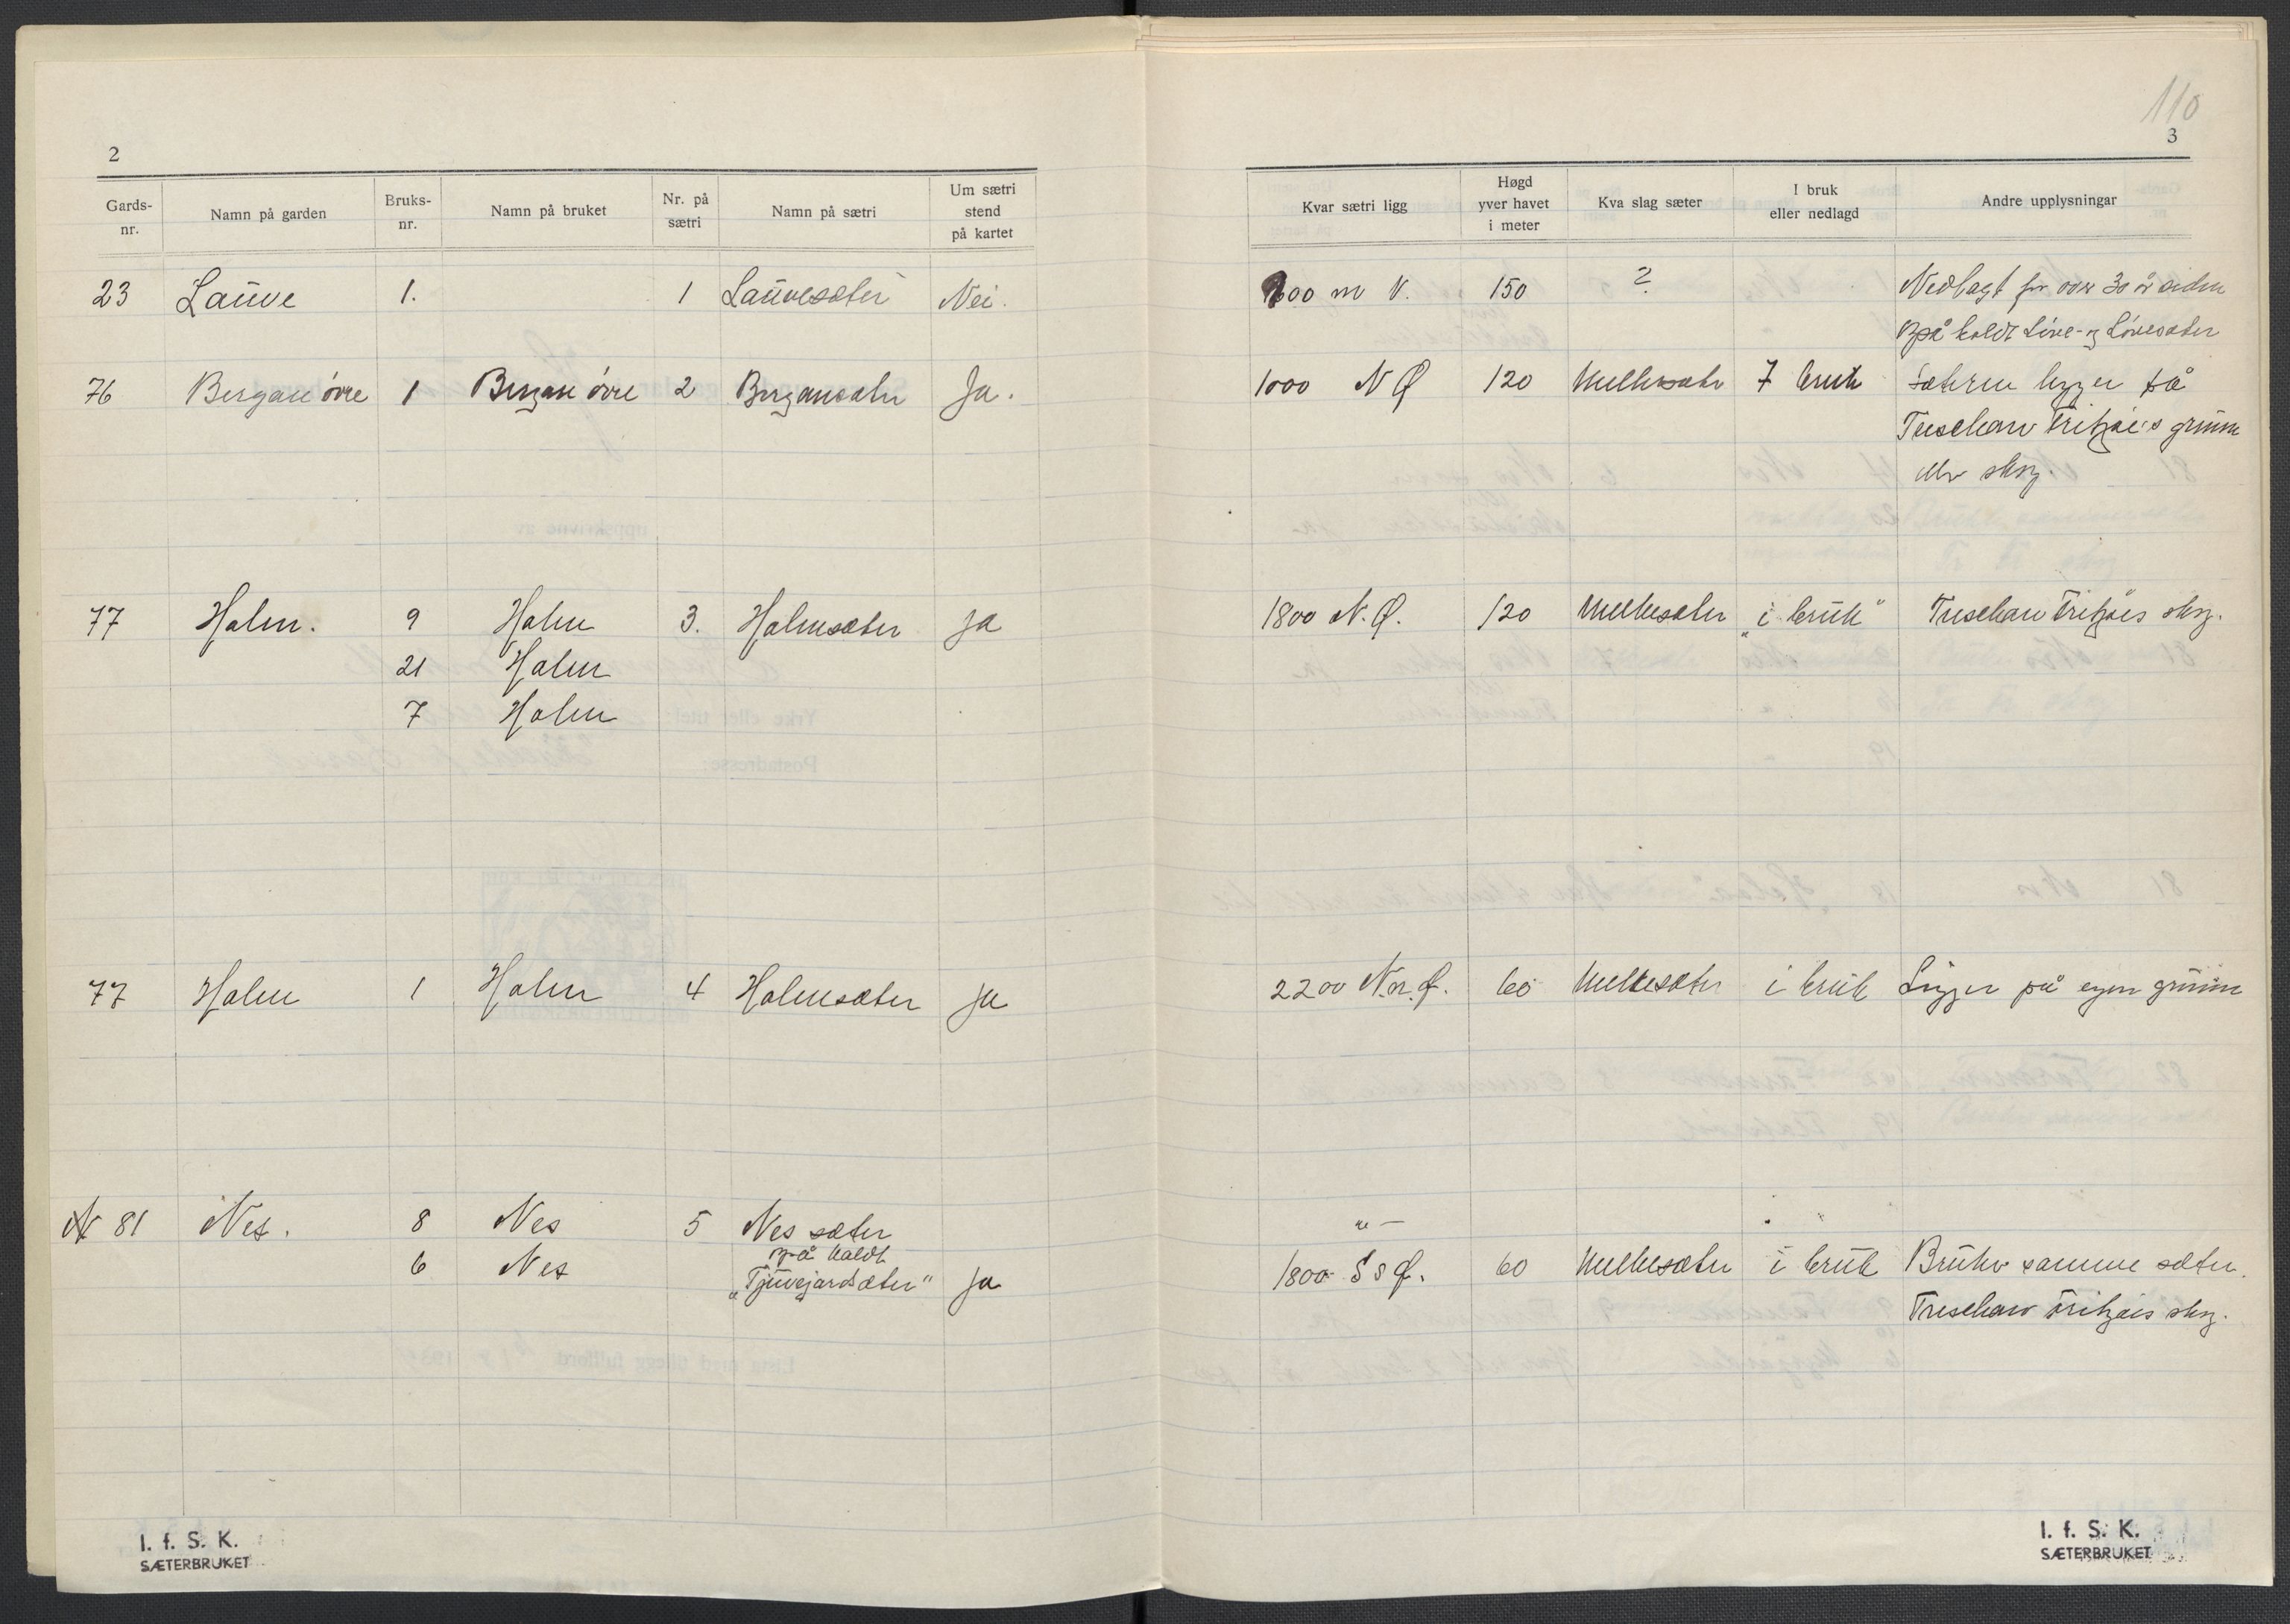 2
Gards-nr. Namn på garden Bruks-nr. Namn på bruket Nr. på sætri Namn på sætri Um sætri stend på kartet
23 Lauve 1. 1 Lauvesæter Nei.
76 Bergan øvre 1 Bergan øvre 2 Bergansæter Ja.
77 Holm. 9 Holm 3. Holmsæter ja
21 Holm
7 Holm
77 Holm 1 Holm 4 Holmsæter ja
N 81 Nes. 8 Nes 5 Nes sæter
6 Nes også kaldt
„Tjuvejordsæter" ja
I. f. S. K.
SÆTERBRUKET
110
3
Kvar sætri ligg Høgd yver havet i meter Kva slag sæter I bruk eller nedlagd Andre upplysningar
00 m V. 150 ? Nedlagt for over 30 år siden
også kaldt Løve- og Løvesæter
1000 N Ø 120 Melkesæter I bruk Sæteren ligger på
Treschow Fritzøes grunn
eller skog.
1800 N. Ø. 120 Melkesæter „i bruk" Treschow Fritzøes skog.
2200 N.n.Ø. 60 Melkesæter i bruk Ligger på egen grunn
" —
1800 S s Ø. 60 Melkesæter i bruk Bruker samme sæter.
Treschow Fritzøes skog.
I. f. S. K.
SÆTERBRUKET